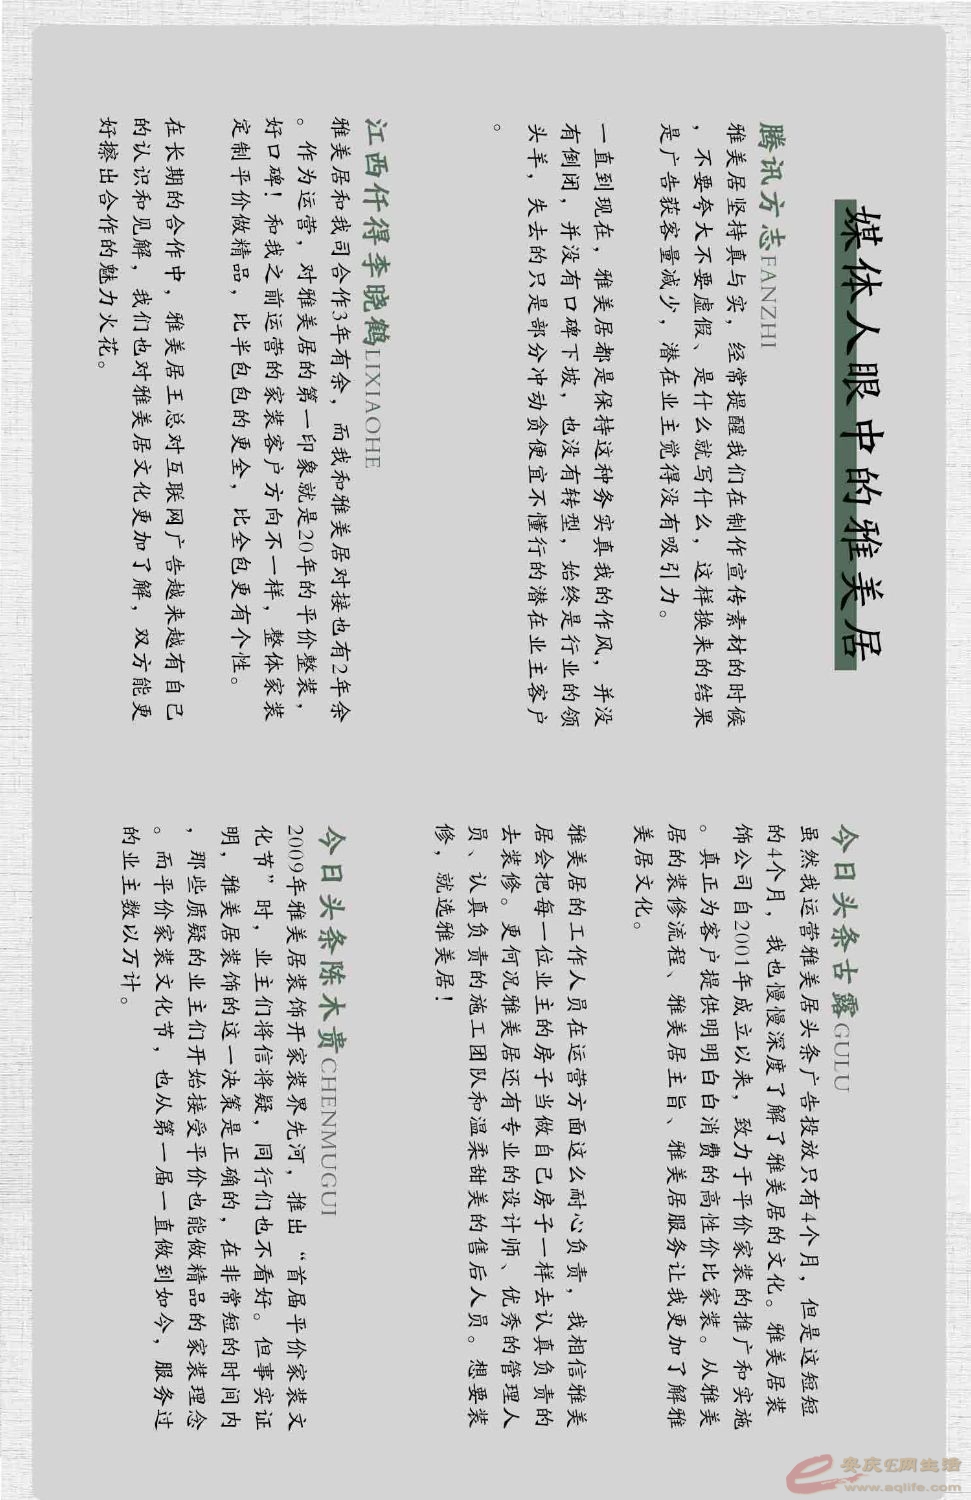 媒体人眼中的雅美居
腾讯方志FANZHI
雅美居坚持真与实，经常提醒我们在制作宣传素材的时候
，不要夸大不要虚假、是什么就写什么，这样换来的结果
是广告获客量减少，潜在业主觉得没有吸引力。
一直到现在，雅美居都是保持这种务实真我的作风，并没
有倒闭，并没有口碑下坡，也没有转型，始终是行业的领
头羊，失去的只是部分冲动贪便宜不懂行的潜在业主客户
。
江西仟得李晓鹤LIXIAOHE
雅美居和我司合作3年有余，而我和雅美居对接也有2年余
。作为运营，对雅美居的第一印象就是20年的平价整装，
好口碑！和我之前运营的家装客户方向不一样，整体家装
定制平价做精品，比半包包的更全，比全包更有个性。
在长期的合作中，雅美居王总对互联网广告越来越有自己
的认识和见解，我们也对雅美居文化更加了解，双方能更
好擦出合作的魅力火花。
今日头条古露GULU
虽然我运营雅美居头条广告投放只有4个月，但是这短短
的4个月，我也慢慢深度了解了雅美居的文化。雅美居装
饰公司自2001年成立以来，致力于平价家装的推广和实施
。真正为客户提供明明白白消费的高性价比家装。从雅美
居的装修流程、雅美居主旨、雅美居服务让我更加了解雅
美居文化。
雅美居的工作人员在运营方面这么耐心负责，我相信雅美
居会把每一位业主的房子当做自己房子一样去认真负责的
去装修。更何况雅美居还有专业的设计师、优秀的管理人
员、认真负责的施工团队和温柔甜美的售后人员。想要装
修，就选雅美居！
今日头条陈木贵CHENMUGUI
2009年雅美居装饰开家装界先河，推出“首届平价家装文
化节”时，业主们将信将疑，同行们也不看好。但事实证
明，雅美居装饰的这一决策是正确的，在非常短的时间内
，那些质疑的业主们开始接受平价也能做精品的家装理念
。而平价家装文化节，也从第一届一直做到如今，服务过
的业主数以万计。
安庆E网生活
www.aqlife.com